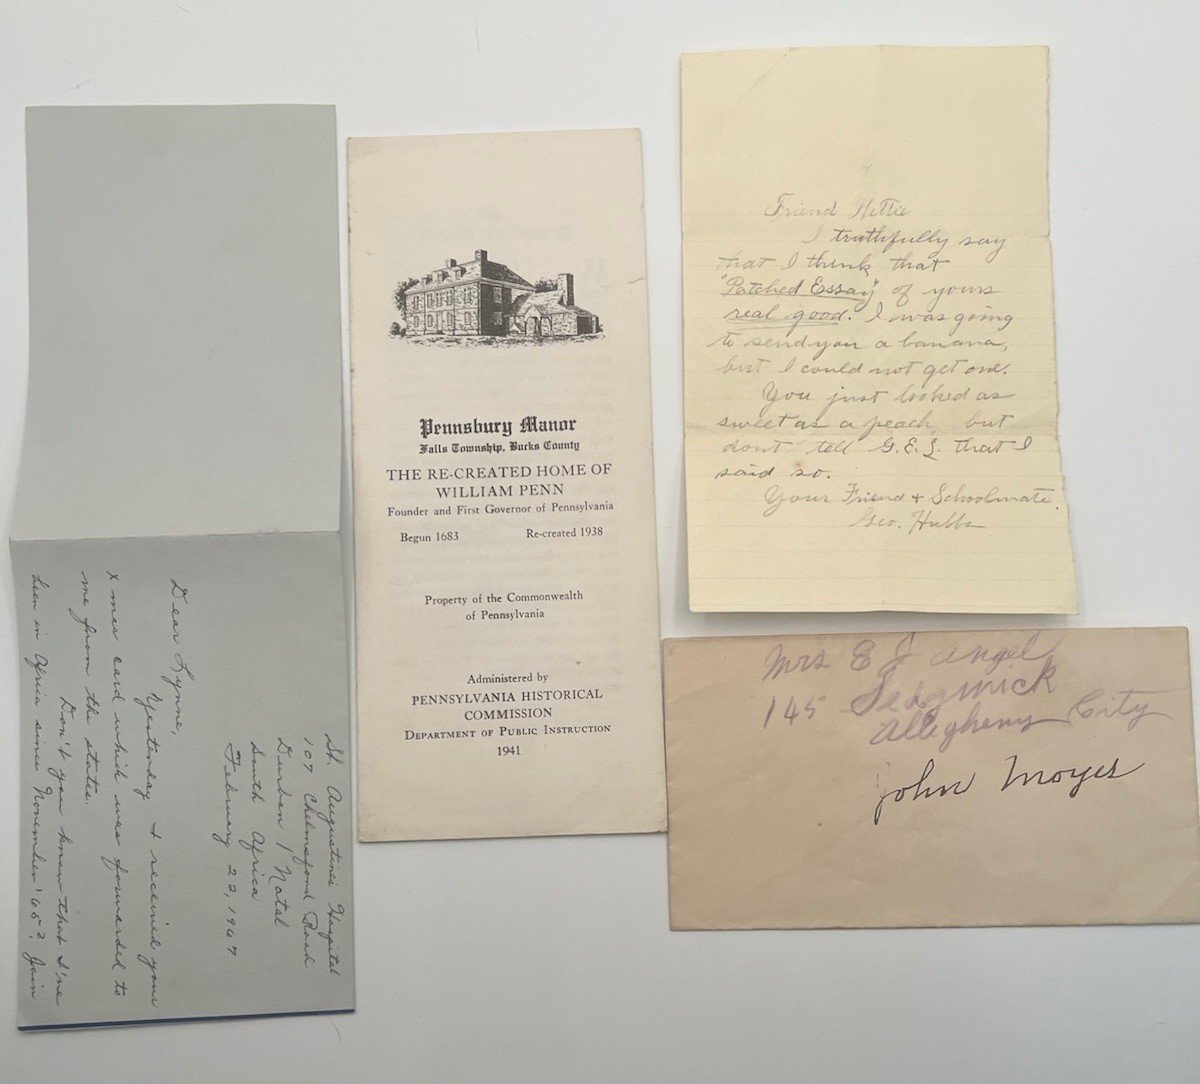 St. Augustine's Hospital
107 Chelmsford Road
Durban / Natal
South Africa
February 22, 1967
Dear Lynne,
Yesterday I received your
Xmas card which was forwarded to
me from the states.
Don't you know that I've
been in Africa since November '65?
Pennsbury Manor
Falls Township, Bucks County
THE RE-CREATED HOME OF
WILLIAM PENN
Founder and First Governor of Pennsylvania
Begun 1683 Re-created 1938
Property of the Commonwealth
of Pennsylvania
Administered by
PENNSYLVANIA HISTORICAL
COMMISSION
DEPARTMENT OF PUBLIC INSTRUCTION
1941
Friend Nettie
I truthfully say
that I think that
"Patched Essay" of yours
real good. I was going
to send you a banana,
but I could not get one.
You just looked as
sweet as a peach, but
dont tell G.E.L. that I
said so.
Your Friend & Schoolmate.
Geo. Hubbs
Mrs E J Angel
145 Sedgwick
Allegheny City
John Moyes